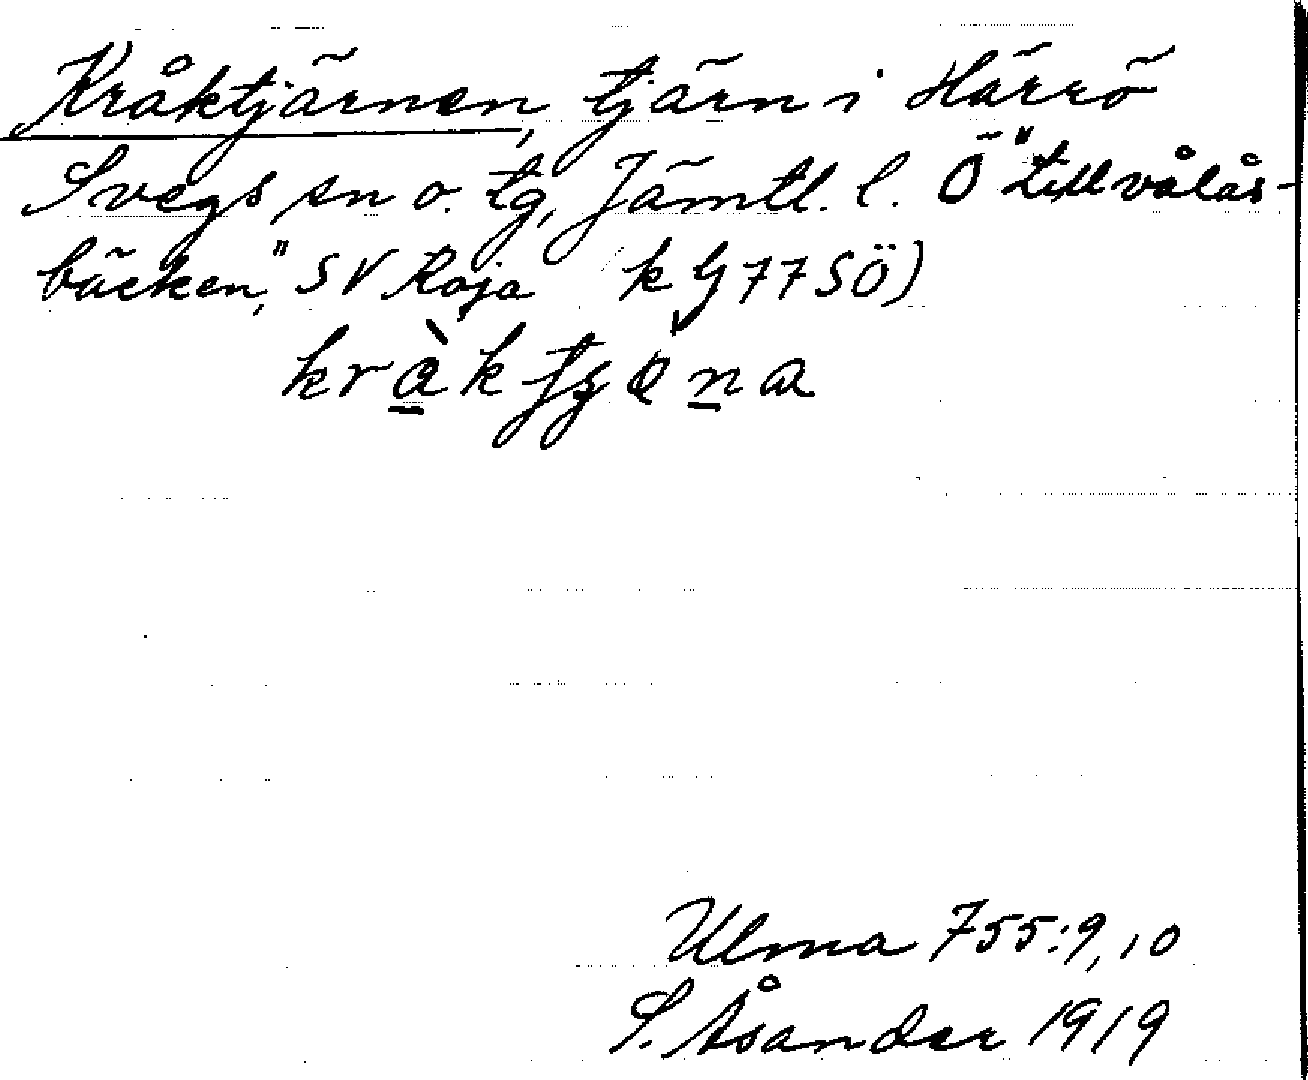 Kråktjärnen, tjärn i Härrö
Svegs sn o. tg, Jämtl. l. Ö "Tillvålås-
bäcken," SV Roja k G 77 SÖ)
Ulma 755:9,10
S. Åsander 1919